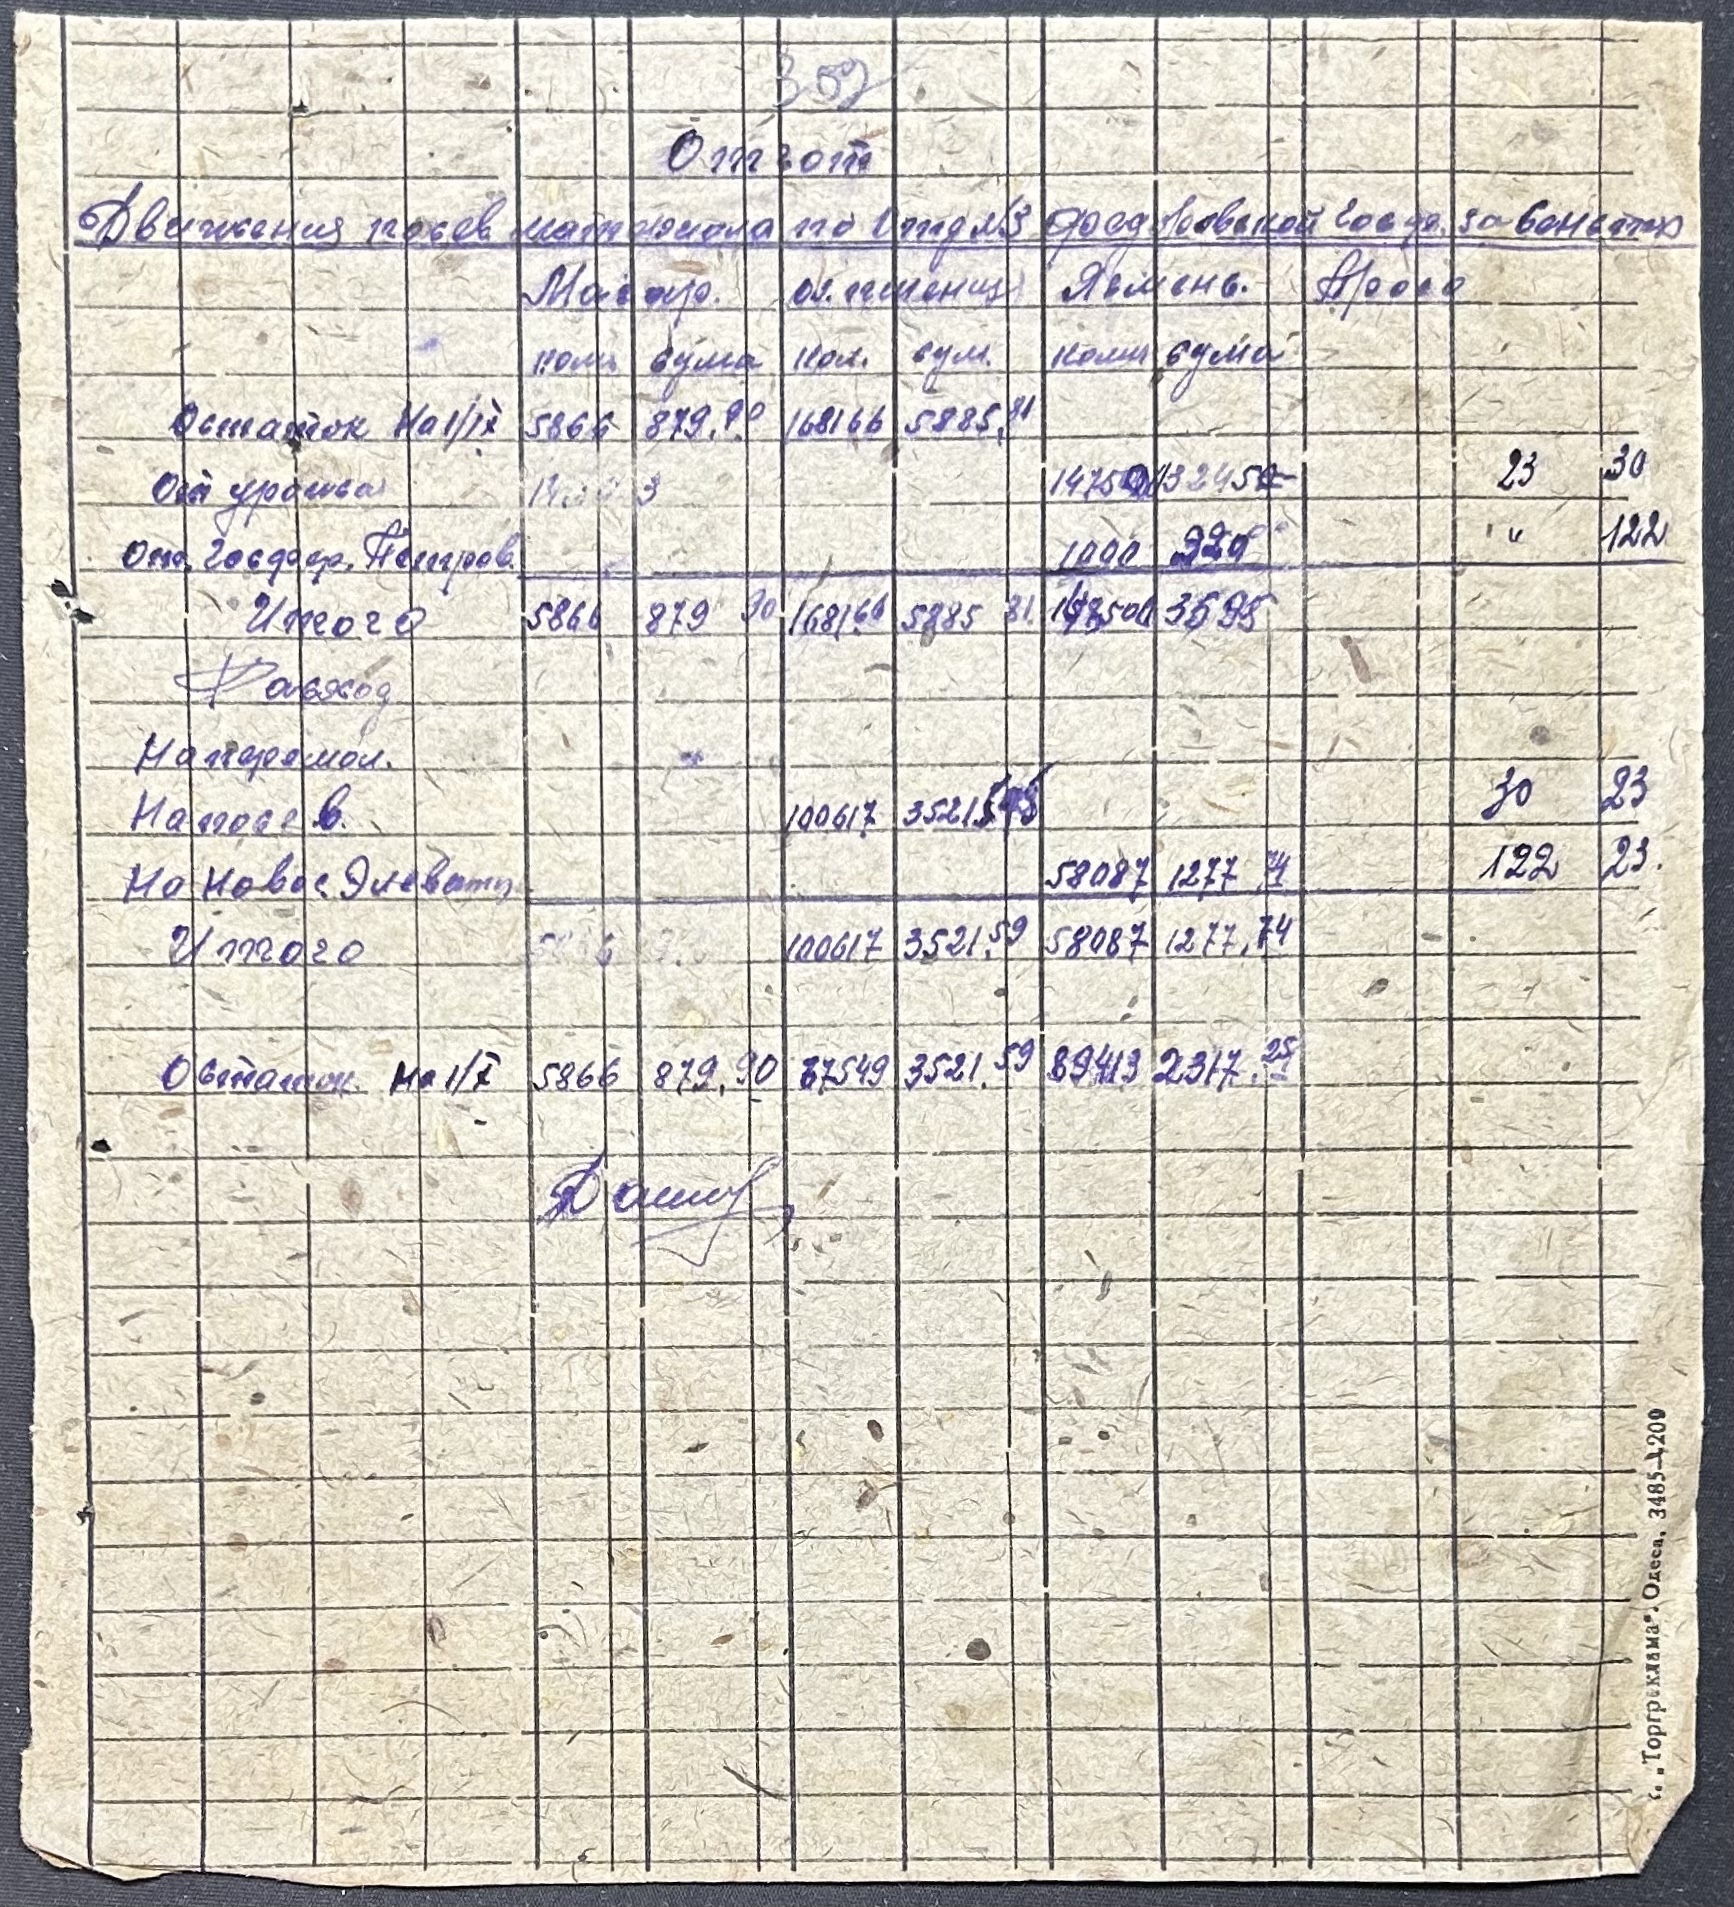 352
Отчот
Движения посев материала по Отд №3 Федоровской Госф. за Сентябр
Маг ар. оз. пшениц Ячмень. Просо
коли сума кол. сум. коли сума
Остаток На 1/IX 5866 879.90 168166 5885.81
От урожая 147500 3245 23 30
От Госфер. Петров. 1000 350 " 122
Итого 5866 879 90 168166 5885 81 147500 3595
Расход
На перемол.
На посев. 100617 3521 30 23
На Новос. Элеватор 58087 1277.74 122 23.
Итого 100617 3521.59 58087 1277.74
Остаток на 1/X 5866 879.90 67549 3521.59 89413 2317.25
„Торгреклама“. Одеса. 3485—1200